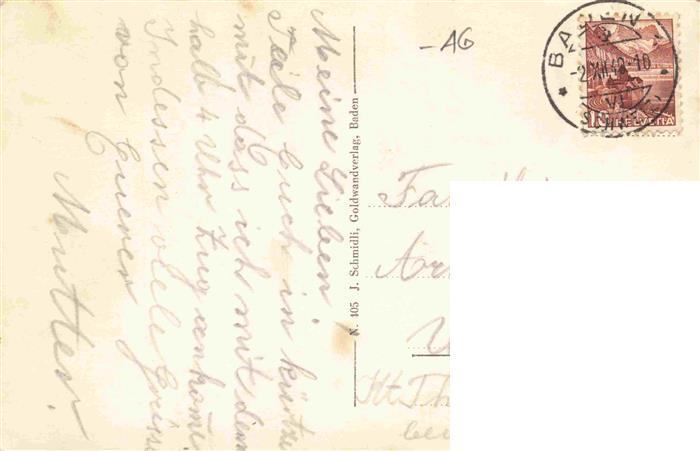 Meine Lieben!
Teile Euch in kürtze
mit dass ich mit dem
halb 4 Uhr Zug ankome
Indessen viele Grüsse
von Euerer
Mutter.
N. 105 J. Schmidli, Goldwandverlag, Baden
-AG
BADEN
HELVETIA
Fa
Ar
Kt. Th
bei